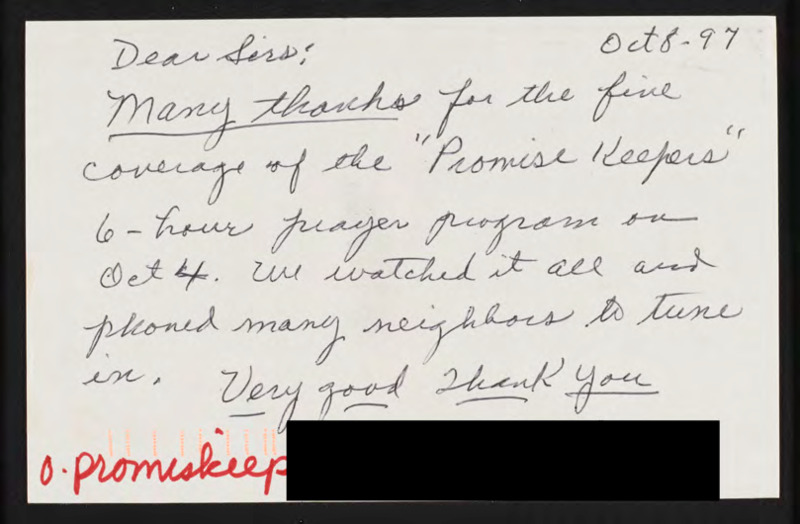 Oct 8-97
Dear Sirs:
Many thanks for the fine
coverage of the "Promise Keepers"
6-hour prayer program on
Oct 4. We watched it all and
phoned many neighbors to tune
in. Very good Thank You
o.promiskeep